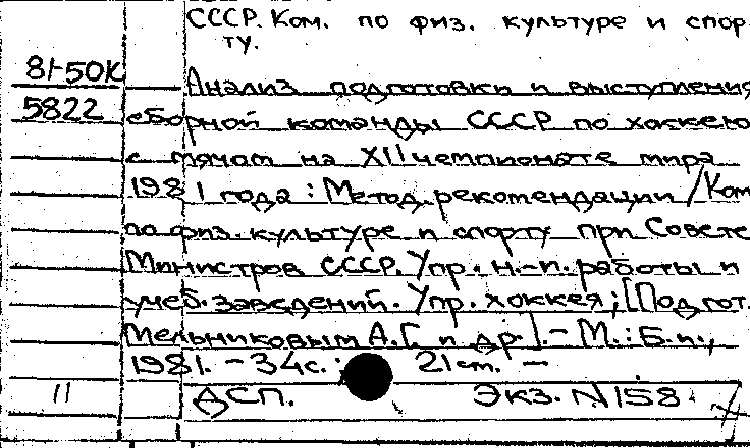 СССР. Ком. по физ. культуре и спор-
ту.
81-50К
Анализ подготовки и выступления
5822 сборной команды СССР по хоккею
с мячом на XII чемпионате мира
1981 года : Метод. рекомендации / Ком.
по физ. культуре и спорту при Совете
Министров СССР. Упр. н.-и. работы и
учеб. заведений. Упр. хоккея; [Подгот.
Мельниковым А.Г. и др.]. - М. : Б.и.,
1981. - 34 с. ; 21 см. -
11 ДСП. Экз. N 158.